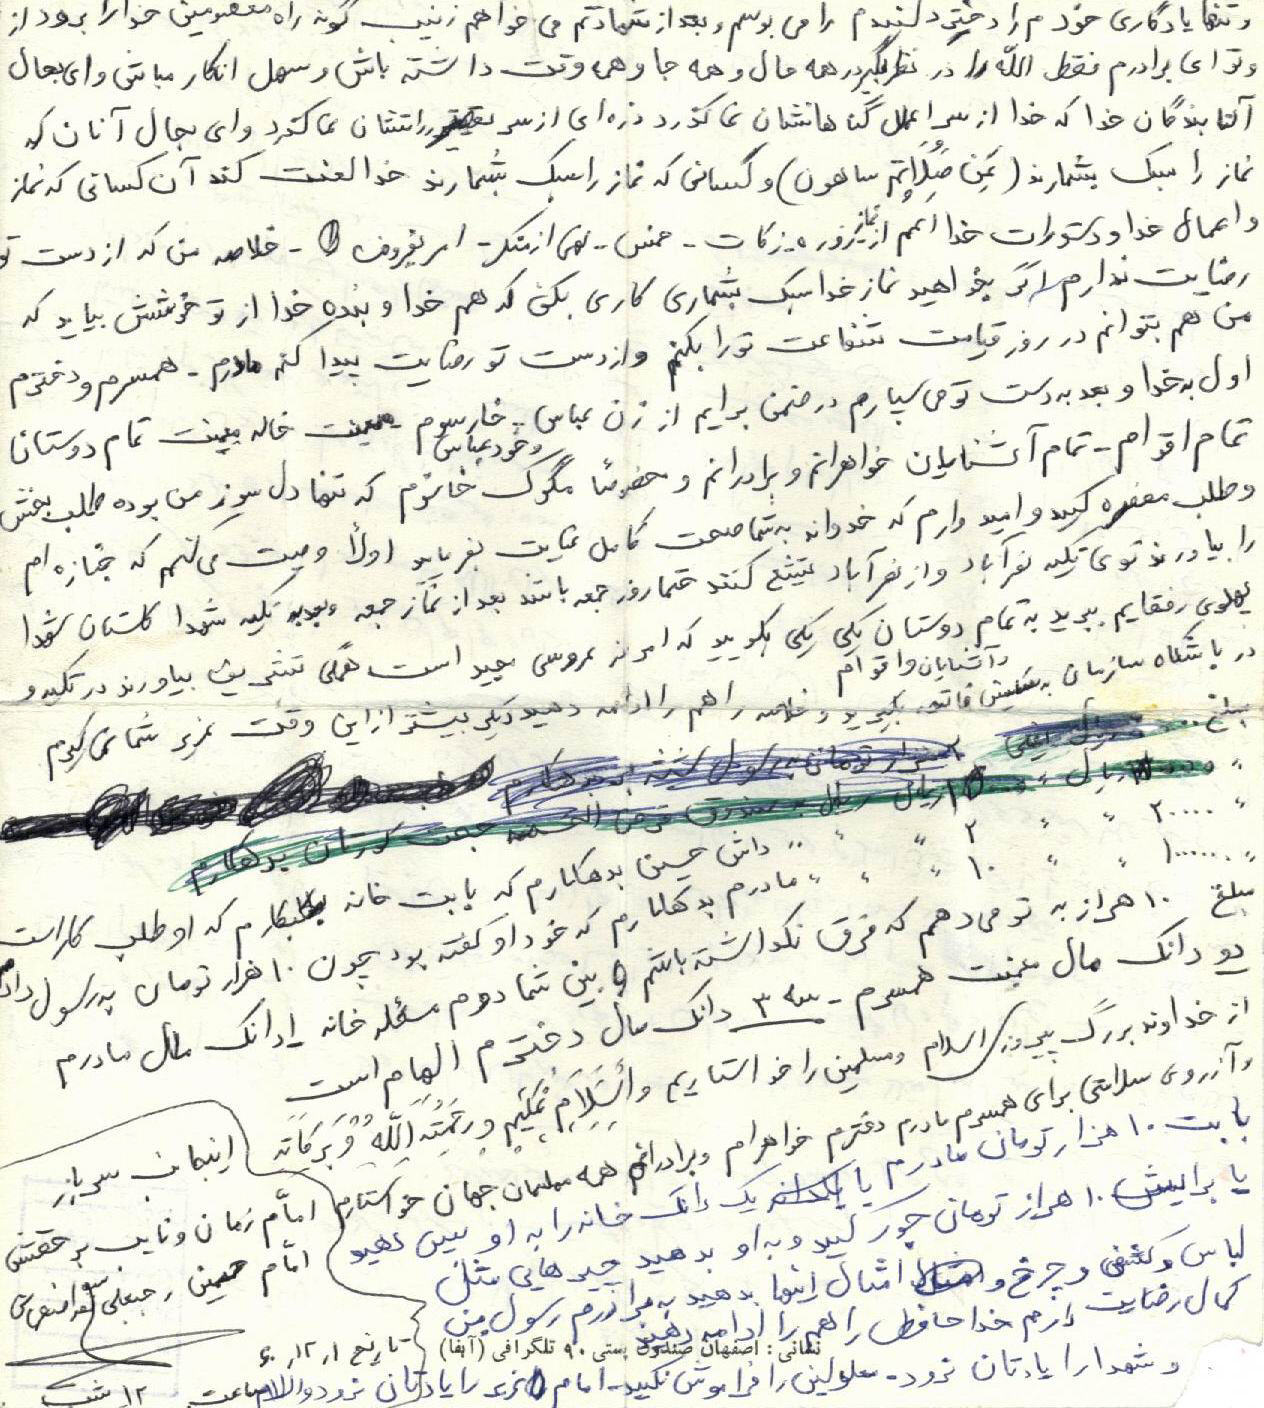 و تنها یادگاری خودم را دختر دلبندم را می بوسم و بعد از شهادتم می خواهم زینب گونه راه معصومین خدا را برود از
و تو ای برادرم فقط الله را در نظر بگیر در همه حال و همه جا و همه وقت داشته باش و سهل انکار مباش وای بحال
آن بندگان خدا که خدا از سر اعمال گناهانشان نمی گذرد ذره ای از سر تقصیراتشان نمی گذرد وای بحال آنان که
نماز را سبک بشمارند (عن صلاتهم ساهون) و کسانی که نماز را سبک بشمارند خدا لعنت کند آن کسانی که نماز
و اعمال خدا و دستورات خدا اعم از نماز روزه - زکات - خمس - نهی از منکر - امر بمعروف - خلاصه من که از دست تو
رضایت ندارم اگر بخواهید نماز خدا سبک بشماری کاری بکن که هم خدا و بنده خدا از تو خوشش بیاید که
من هم بتوانم در روز قیامت شفاعت تو را بکنم و از دست تو رضایت پیدا کنم مادرم - همسرم و دخترم
اول به خدا و بعد به دست تو می سپارم در ضمن برایم از زن عباس و خود عباس خارسوم - خاله تمام دوستان
تمام اقوام - تمام آشنایان خواهرانم و برادرانم و خصوصاً خانوم که تنها دل سوز من بوده طلب بخش
و طلب مغفره کنید و امید وارم که خداوند به شما صحت کامل عنایت بفرماید اولاً وصیت می کنم که جنازه ام
را بیاورند توی تکیه نصرآباد و از نصرآباد تشیع کنند حتما روز جمعه باشد بعد از نماز جمعه و بعد به تکیه شهدا گلستان شهدا
پهلوی رفقایم ببرید به تمام دوستان و آشنایان و اقوام یکی یکی بگویید که امروز عروسی مجید است همگی تشریف بیاورند در تکیه و
در باشگاه سازمان فاتحه بگیرید و خلاصه راهم را ادامه دهید دیگر بیشتر از این وقت عزیز شما نمی گیرم
مبلغ
" ریال " ریال به صندوق قرض الحسنه حجت کردستان بدهکارم
" ۲۰۰۰۰ " " ۲ " " " داش حسین بدهکارم که بابت خانه بدهکارم که او طلب کار است
" ۱۰۰۰۰۰ " " ۱۰ " " " مادرم بدهکارم که خود او گفته بود چون ۱۰ هزار تومان به رسول دادم
مبلغ ۱۰ هزار به تو می دهم که فرق نگذاشته باشم بین شما دوم مسئله خانه ۱ دانگ مال مادرم
دو دانگ مال همسرم - سه ۳ دانگ مال دخترم الهام است
از خداوند بزرگ پیروزی اسلام و مسلمین را خواستاریم و السلام علیکم و رحمته الله و برکاته
و آرزوی سلامتی برای همسرم مادرم دخترم خواهرام و برادرانم همه مسلمان جهان خواستارم
اینجانب سرباز
امام زمان و نایب بر حقش
امام خمینی
بابت ۱۰ هزار تومان مادرم یا یک دانگ خانه را به او پس دهید
یا برایش ۱۰ هزار تومان جور کنید و به او بدهید چیزهایی مثل
لباس و کفش و چرخ و امثال اینها بدهید به برادرم رسول من
کمال رضایت دارم خداحافظ راهم را ادامه دهید
نشانی : اصفهان صندوق پستی ۹۰ تلگرافی (آبفا)
و شهدا را یادتان نرود - معلولین را فراموش نکنید - امام عزیز را یادتان نرود والسلام
تاریخ ۱ر۱۲ر۶۰
ساعت ۱۲ شب